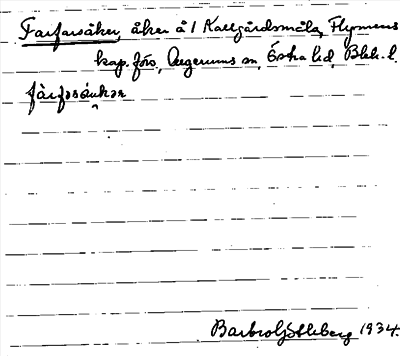 Farfarsåker, åker å 1 Kallgårdsmåla, Flymens
kap.förs, Augerums sn, Östra hd, Blek. l.
fàrfarsåkær
Barbro 1934.